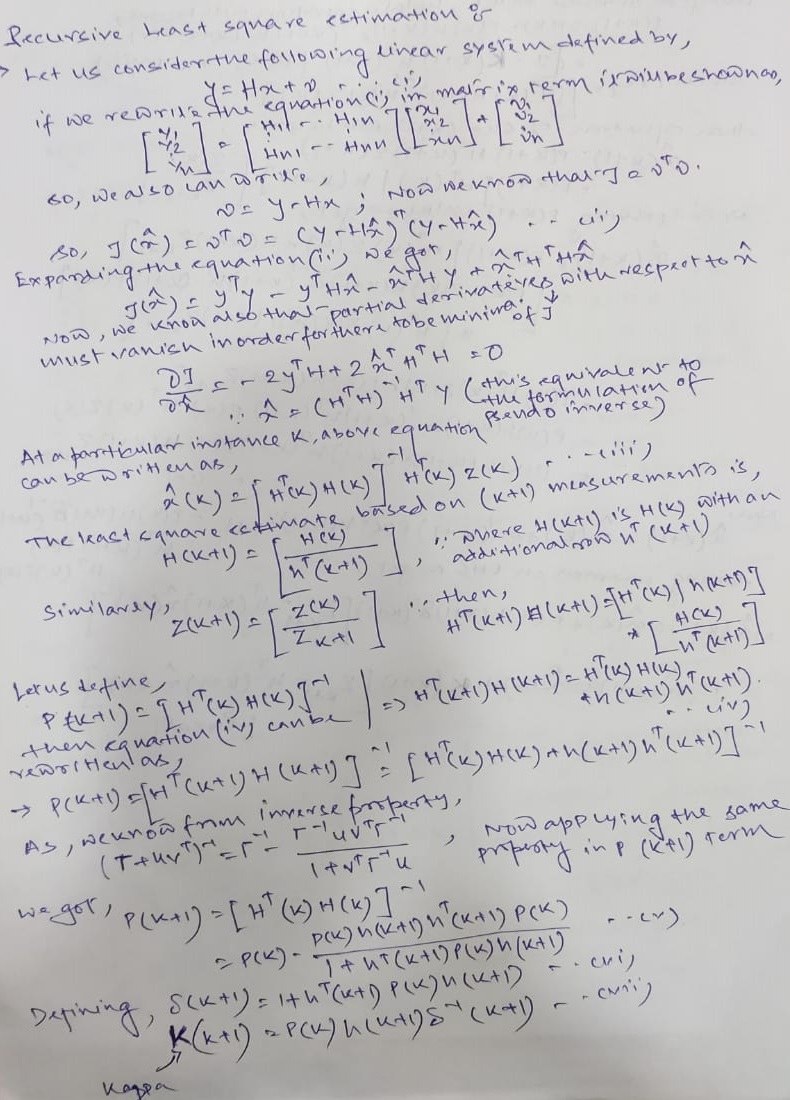 Recursive Least square estimation :-
→ Let us consider the following linear system defined by,
y = Hx + v - - (i),
if we rewrite the equation (i) in matrix term it will be shown as,
[y1 y2 yn] = [H11 -- H1n Hn1 -- Hnn] [x1 x2 xn] + [v1 v2 vn]
so, we also can write,
v = y - Hx ; Now we know that J = vᵀv.
so, J(x̂) = vᵀv = (y - Hx̂)ᵀ(y - Hx̂) - - (ii),
Expanding the equation (ii), we got,
J(x̂) = yᵀy - yᵀHx̂ - x̂ᵀHy + x̂ᵀHᵀHx̂
Now, we know also that partial derivatives with respect to x̂
must vanish in order for there to be minima. of J
∂J/∂x̂ = -2yᵀH + 2x̂ᵀHᵀH = 0
∵ x̂ = (HᵀH)⁻¹Hᵀy (this equivalent to
the formulation of
pseudo inverse)
At a particular instance K, above equation
can be written as,
x̂(K) = [Hᵀ(K)H(K)]⁻¹ Hᵀ(K) Z(K) - - - (iii),
The least square estimate based on (K+1) measurements is,
H(K+1) = [H(K) / hᵀ(K+1)], ∵ where H(K+1) is H(K) with an
additional row hᵀ(K+1)
Similarly, Z(K+1) = [Z(K) / Z_K+1] ∵ then,
Hᵀ(K+1)H(K+1) = [Hᵀ(K) | h(K+1)]
* [H(K) / hᵀ(K+1)]
Let us define,
P(K+1) = [Hᵀ(K)H(K)]⁻¹
⇒ Hᵀ(K+1)H(K+1) = Hᵀ(K)H(K)
+ h(K+1)hᵀ(K+1).
- - (iv)
then equation (iv) can be
rewritten as,
→ P(K+1) = [Hᵀ(K+1)H(K+1)]⁻¹ = [Hᵀ(K)H(K) + h(K+1)hᵀ(K+1)]⁻¹
As, we know from inverse property,
(T+uvᵀ)⁻¹ = Γ⁻¹ - Γ⁻¹uvᵀΓ⁻¹ / 1+vᵀΓ⁻¹u , Now applying the same
property in P(K+1) term
we got, P(K+1) = [Hᵀ(K)H(K)]⁻¹
= P(K) - P(K)h(K+1)hᵀ(K+1)P(K) / 1+hᵀ(K+1)P(K)h(K+1) - - (v)
Defining, δ(K+1) = 1+hᵀ(K+1)P(K)h(K+1) - - (vi),
K(K+1) = P(K)h(K+1)δ⁻¹(K+1) - - (vii),
Kappa